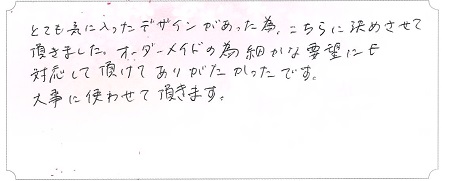 とても気に入ったデザインがあった為、こちらに決めさせて
頂きました。オーダーメイドの為細かな要望にも
対応して頂けてありがたかったです。
大事に使わせて頂きます。